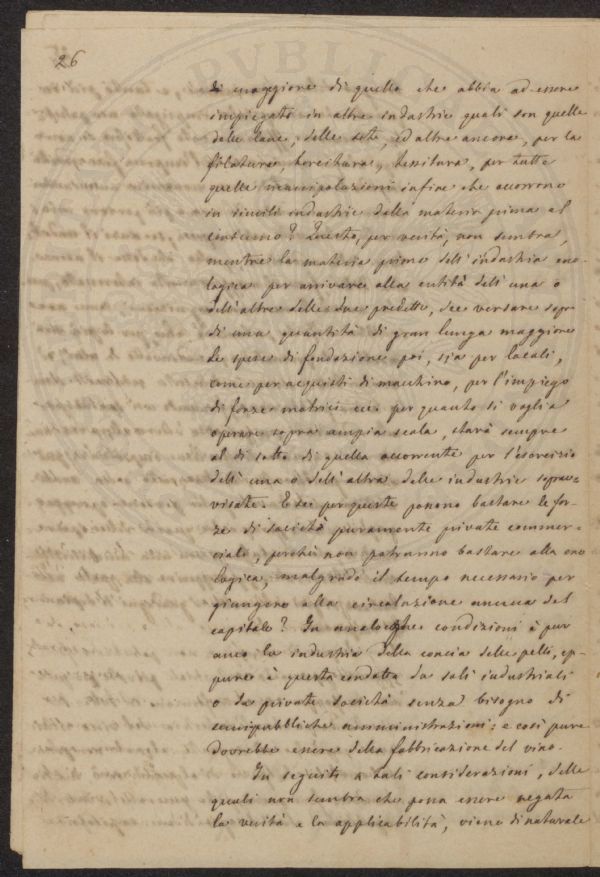 26
di maggiore di quello che abbia ad essere
impiegato in altre industrie quali son quelle
delle lane, delle sete, ed altre ancora, per la
filatura, torcitura, tessitura, per tutte
quelle manipolazioni infine che occorrono
in simili industrie dalla materia prima al
consumo? Questo, per verità, non sembra,
mentre la materia prima dell'industria eno-
logica per arrivare alla entità dell'una o
dell'altra delle due predette, dee versare sopra
di una quantità di gran lunga maggiore
Le spese di fondazione poi, sia per locali,
come per acquisti di macchine, per l'impiego
di forze motrici ecc. per quanto si voglia
operare sopra ampia scala, starà sempre
al di sotto di quella occorrente per l'esercizio
dell'una o dell'altra delle industrie sopravv-
visate. E se per queste ponno bastare le for-
ze di società puramente private commer-
ciali, perchè non potranno bastare alla eno
logica, malgrado il tempo necessario per
giungere alla circolazione annua del
capitale? In analoghe condizioni è pur
anco la industria della concia delle pelli, ep-
pure è questa condotta da soli industriali
o da private società senza bisogno di
semipubbliche amministrazioni; e così pure
dovrebbe essere della fabbricazione del vino.
In seguito a tali considerazioni, delle
quali non sembra che possa essere negata
la verità e la applicabilità, viene di naturale